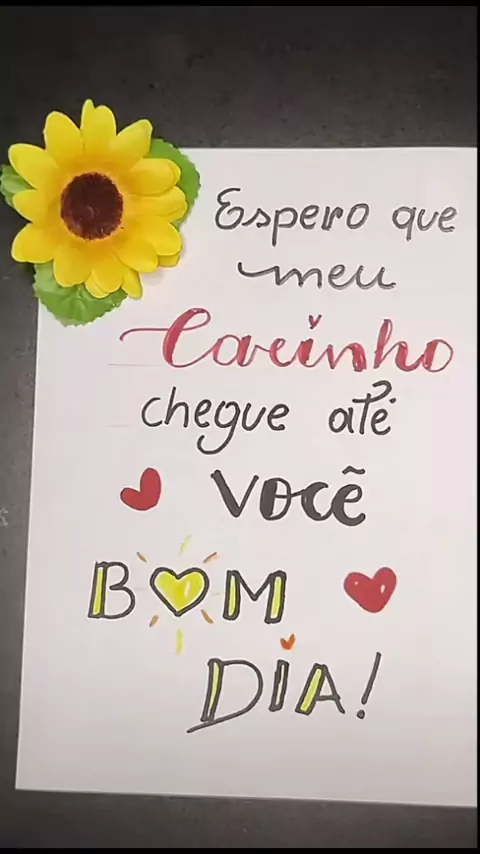 Espero que
meu
Carinho
chegue até
você
BOM
DIA!